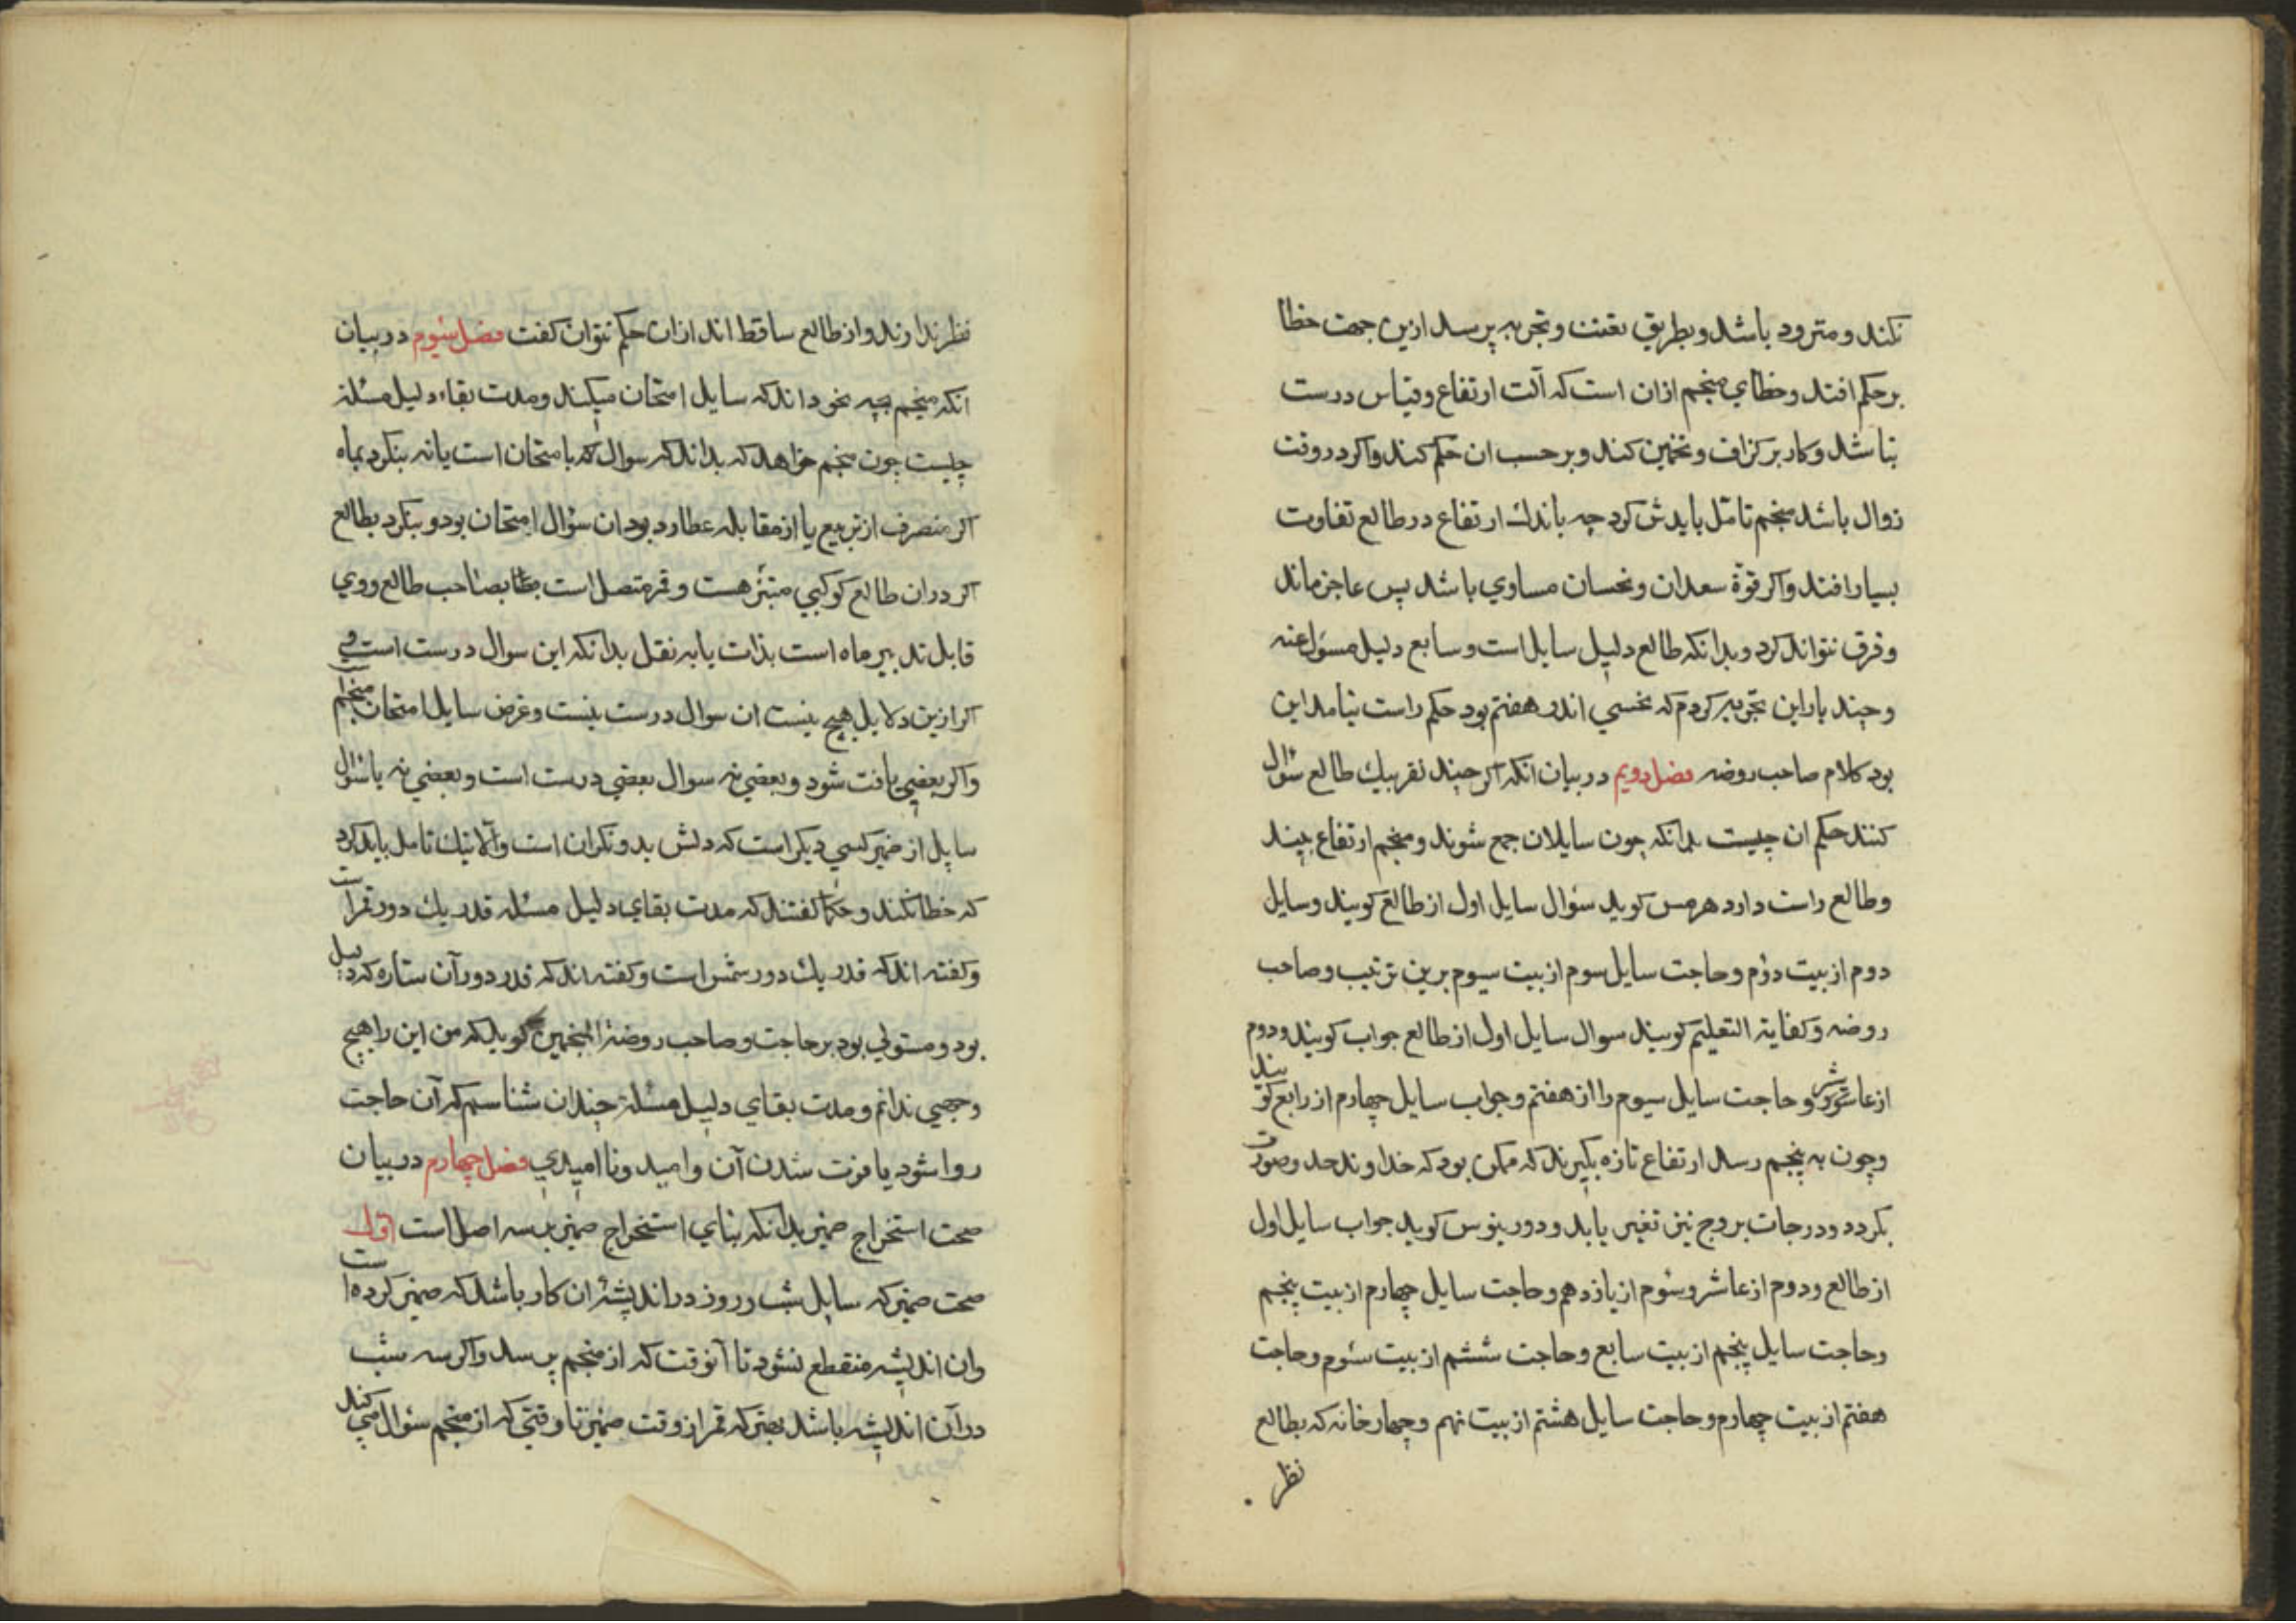 نکند و متردد باشد و بطریق تعنت و تجربه پرسد ازین جهت خطا
بر حکم افتد و خطای منجم ازان است که آلت ارتفاع و قیاس درست
نباشد و کار بر کزاف و تخمین کند و بر حسب ان حکم کند واکر در وقت
زوال باشد منجم تامل بایدش کرد چه باندک ارتفاع در طالع تفاوت
بسیار افتد واکر قوة سعدان و نحسان مساوی باشد پس عاجز ماند
و فرق نتواند کرد و بدانکه طالع دلیل سایل است و سابع دلیل مسؤل عنه
و چند بار این تجربه کردم که نحسی اندر هفتم بود حکم راست نیامد این
بود کلام صاحب روضه فصل دویم در بیان انکه اکر چند نفر بیک طالع سؤال
کنند حکم ان چیست بدانکه چون سایلان جمع شوند و منجم ارتفاع بیند
و طالع راست دارد هرمس کوید سؤال سایل اول از طالع کویند و سایل
دوم از بیت دوم و حاجت سایل سوم از بیت سیوم برین ترتیب و صاحب
روضه و کفایة التعلیم کویند سوال سایل اول از طالع جواب کویند و دوم
از عاشر و حاجت سایل سیوم را از هفتم و جواب سایل چهارم از رابع کویند
و چون به پنجم رسد ارتفاع تازه بکیرند که ممکن بود که خداوند حد و صورت
بکردد و درجات بروج نیز تغیر یابد و دورینوس کوید جواب سایل اول
از طالع و دوم از عاشر و سوم از یازدهم و حاجت سایل چهارم از بیت پنجم
و حاجت سایل پنجم از بیت سابع و حاجت ششم از بیت سوم و حاجت
هفتم از بیت چهارم و حاجت سایل هشتم از بیت نهم و چهار خانه که بطالع
نظر
نظر ندارند و از طالع ساقط اند ازان حکم نتوان کفت فصل سیوم در بیان
انکه منجم بچه نحو داند که سایل امتحان میکند و مدت بقاء دلیل مسئلة
چیست چون منجم خواهد که بداند که سوال که بامتحان است یا نه بنکرد بماه
اکر منصرف از تربیع یا از مقابله عطارد بود ان سؤال امتحان بود و بنکرد بطالع
اکر دران طالع کوکبی مبتز هست و قمر متصل است بصاحب طالع و وی
قابل تدبیر ماه است بذات یا به نقل بدانکه این سوال درست است و
اکر ازین دلایل هیچ نیست ان سوال درست نیست و غرض سایل امتحان منجم است
واکر بعضی یافت شود و بعضی نه سوال بعضی درست است و بعضی نه یا سؤال
سایل از ضمیر کسی دیکر است که دلش بدو نکران است و الا نیک تامل باید کرد
که خطا نکند و حکما کفتند که مدت بقای دلیل مسئله قدر یک دور قمر است
و کفته اند که قدر یک دور شمس است و کفته اند که قدر دور آن ستاره که دلیل
بود و مستولی بود بر حاجت و صاحب روضة المنجمین کوید که من این را هیچ
وجهی ندانم و مدت بقای دلیل مسئلة چندان شناسم که آن حاجت
روا شود یا فوت شدن آن و امید و ناامیدی فصل چهارم در بیان
صحت استخراج ضمیر بدانکه بنای استخراج ضمیر بر سه اصل است اول
صحت ضمیر که سایل شب و روز در اندیشه ان کار باشد که ضمیر کرده است
وان اندیشه منقطع نشود تا آنوقت که از منجم پرسد واکر سه شب
در آن اندیشه باشد بهتر که قمر از وقت ضمیر تا وقتی که از منجم سؤال می کند